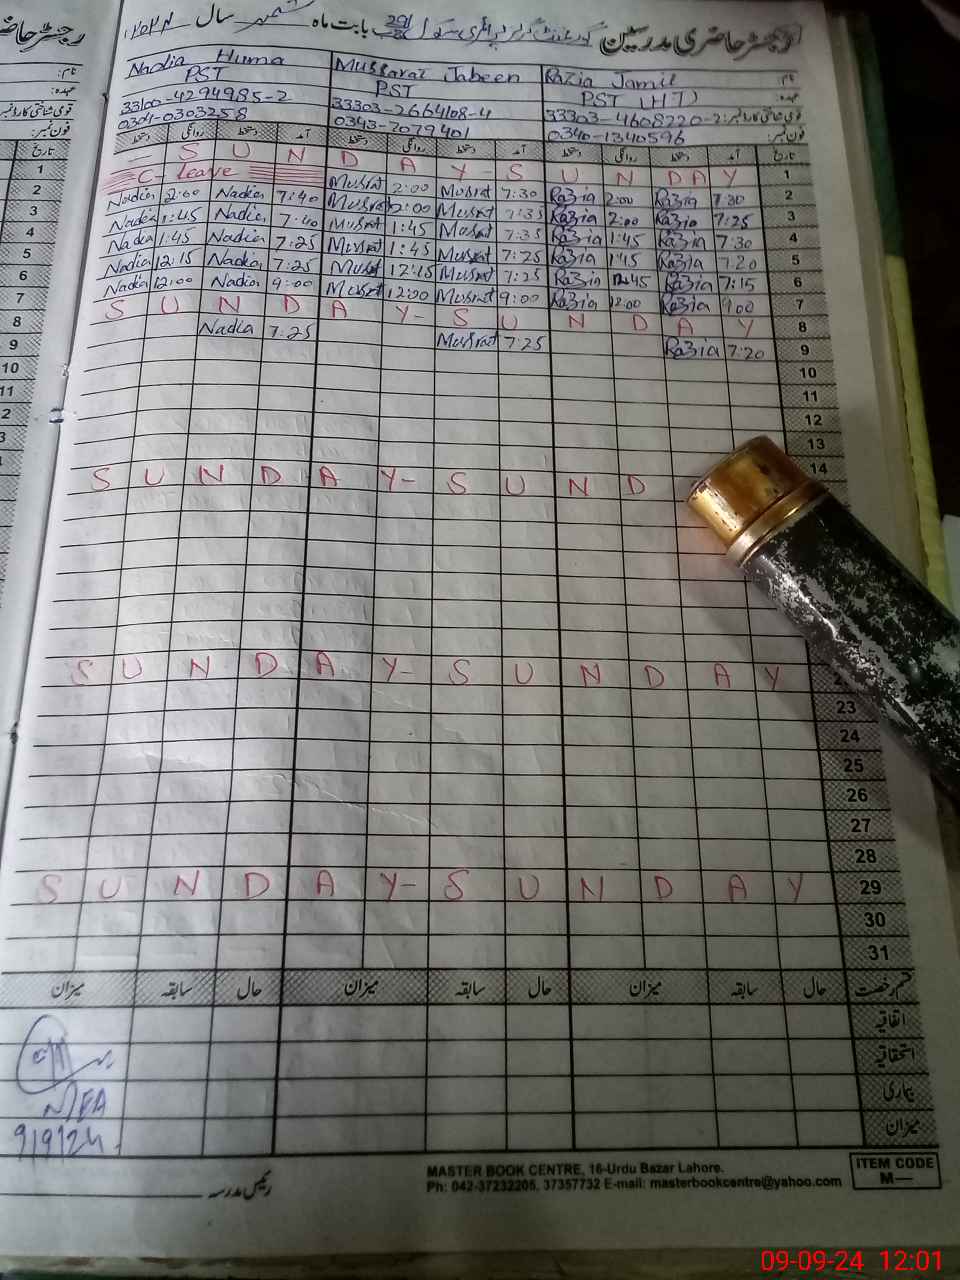 رجسٹر حاضری مدرسین گورنمنٹ گرلز پرائمری سکول 291 بابت ماہ ستمبر سال ۲۰۲۴ء
رجسٹر حاضری
نام: Razia Jamil Mussarat Jabeen Nadia Huma
عہدہ: PST (HT) PST PST
قومی شناختی کارڈ نمبر: 33303-4608220-2 33303-2664108-4 33100-4294985-2
فون نمبر: 0340-1340596 0343-7079401 0304-0303258
تاریخ آمد دستخط روانگی دستخط آمد دستخط روانگی دستخط آمد دستخط روانگی دستخط
- S U N D A Y - S U N D A Y 1
C- Leave Musrat 2:00 Musrat 7:30 Razia 2:00 Razia 7:30 2
Nadia 2:00 Nadia 7:40 Musrat 2:00 Musrat 7:35 Razia 2:00 Razia 7:25 3
Nadia 1:45 Nadia 7:40 Musrat 1:45 Musrat 7:35 Razia 1:45 Razia 7:30 4
Nadia 1:45 Nadia 7:25 Musrat 1:45 Musrat 7:25 Razia 1:45 Razia 7:20 5
Nadia 12:15 Nadia 7:25 Musrat 12:15 Musrat 7:25 Razia 12:45 Razia 7:15 6
Nadia 12:00 Nadia 9:00 Musrat 12:00 Musrat 9:00 Razia 12:00 Razia 9:00 7
S U N D A Y - S U N D A Y 8
Nadia 7:25 Musrat 7:25 Razia 7:20 9
10
11
12
13
14
S U N D A Y - S U N D
S U N D A Y - S U N D A Y
23
24
25
26
27
28
S U N D A Y - S U N D A Y 29
30
31
قسم رخصت حال سابقہ میزان حال سابقہ میزان حال سابقہ میزان
اتفاقیہ
استحقاقیہ
بیماری
میزان
9/9/24
رئیس مدرسہ
MASTER BOOK CENTRE, 16-Urdu Bazar Lahore.
Ph: 042-37232205, 37357732 E-mail: masterbookcentre@yahoo.com
ITEM CODE
M—
09-09-24 12:01